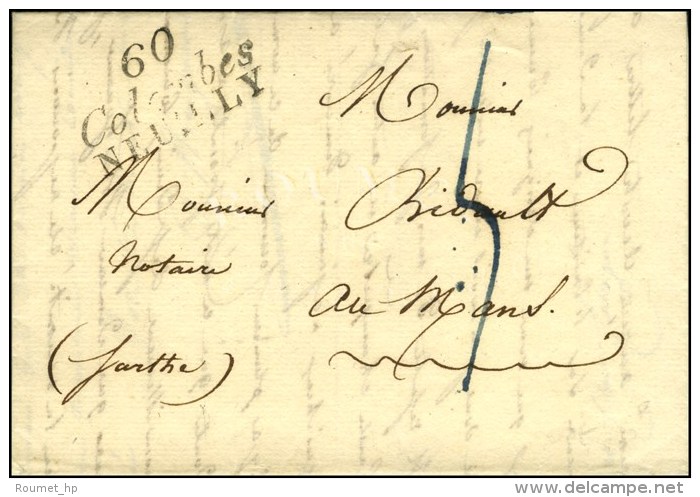 60
Colombes
NEUILLY
Monsieur
Monsieur
Notaire
au Mans.
(Sarthe)
5
Roumet_hp
delcampe.net